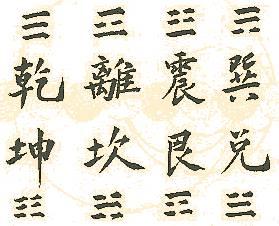 乾離震巽
坤坎艮兌